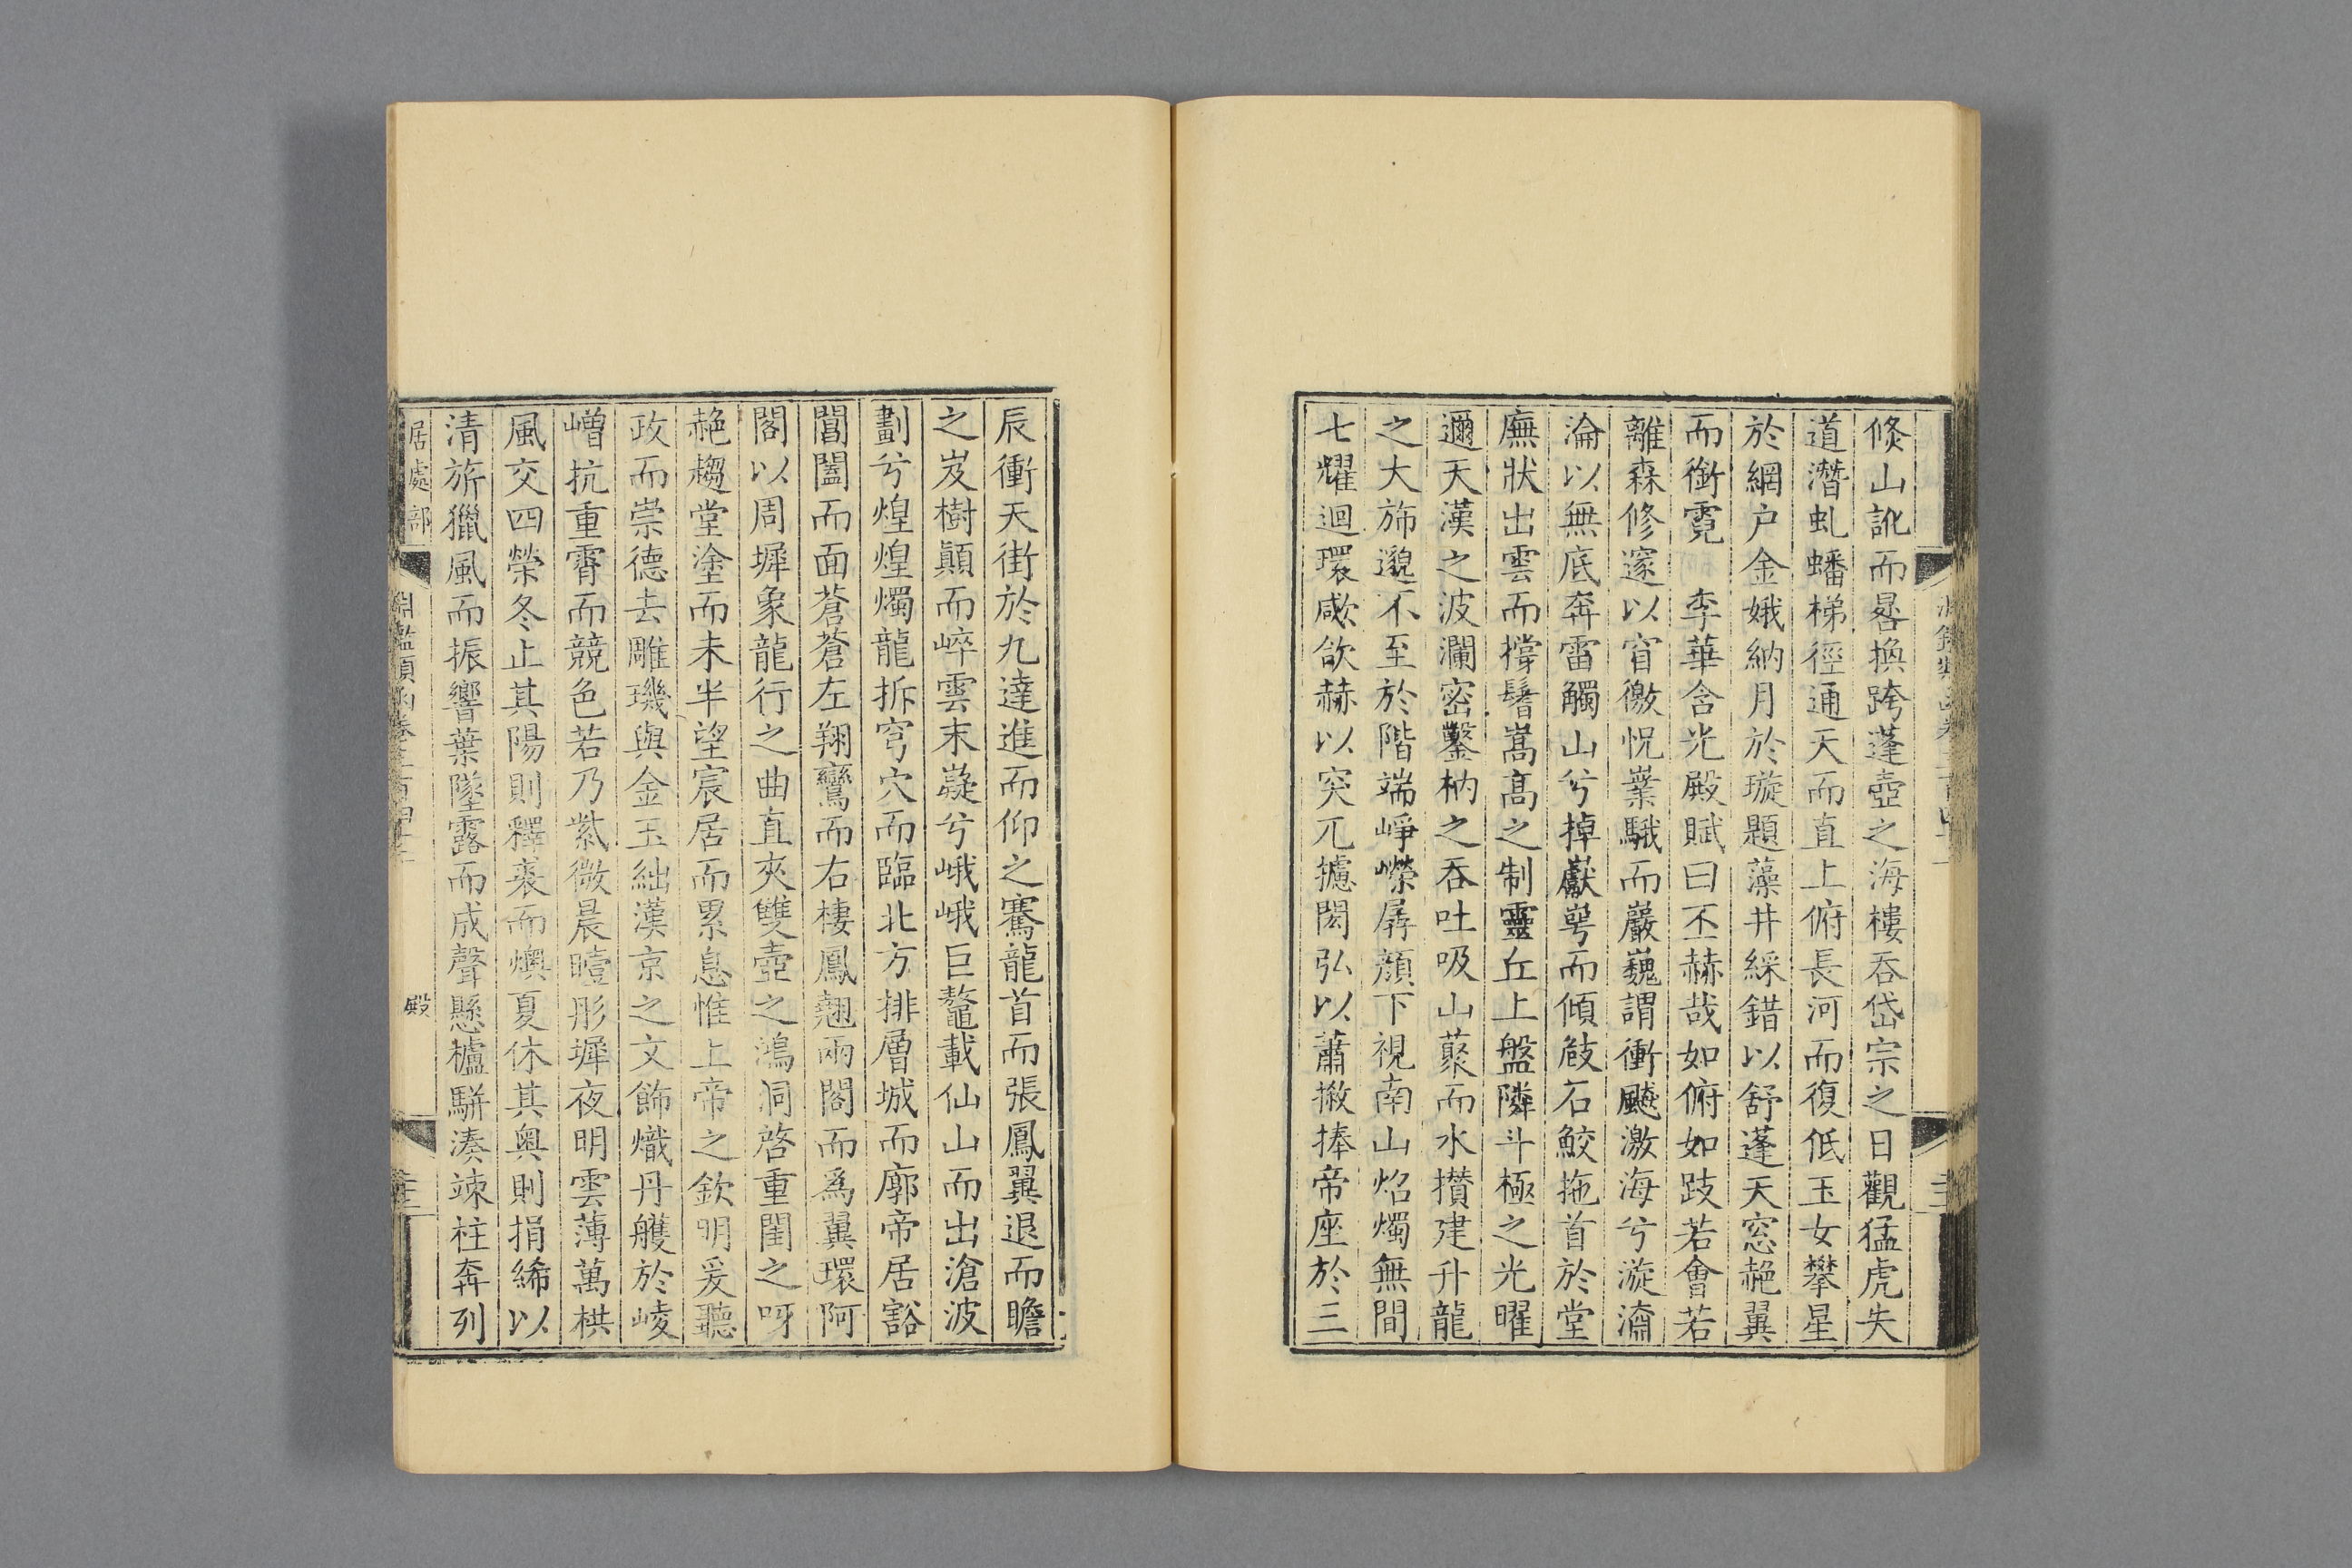 倐山訛而晷換跨蓬壺之海樓吞岱宗之日觀猛虎失
道潛虬蟠梯徑通天而直上俯長河而復低玉女攀星
於網户金娥納月於璇題藻井綵錯以舒蓬天窓赩翼
而銜霓　李華含光殿賦曰丕赫哉如俯如跂若會若
離森修邃以窅徼怳嶪騀而巖巍謂衝飈激海兮漩濤
淪以無底奔雷觸山兮掉巘崿而傾敧石鮫拖首於堂
廡狀出雲而撐鬐嵩髙之制靈丘上盤隣斗極之光曜
邇天漢之波瀾密鑿枘之吞吐吸山藂而水攅建升龍
之大斾邈不至於階端崢嶸孱顔下視南山焰燭無間
七耀迴環歘欱赫以突兀攄閎弘以蕭撇捧帝座於三
辰衝天街於九達進而仰之騫龍首而張鳳翼退而瞻
之岌樹顛而崒雲末薿兮峨峨巨鼇載仙山而出滄波
劃兮煌煌燭龍拆穹穴而臨北方排層城而廓帝居豁
閶闔而面蒼蒼左翔鸞而右棲鳳翹兩閣而爲翼環阿
閣以周墀象龍行之曲直夾雙壺之鴻洞啓重閨之呀
赩趨堂塗而未半望宸居而累息惟上帝之欽明爰聽
政而崇德去雕璣與金玉絀漢京之文飾熾丹雘於崚
嶒抗重霄而競色若乃紫微晨曀彤墀夜明雲薄萬栱
風交四榮冬止其陽則釋裘而燠夏休其奥則捐絺以
清旂獵風而振響葉墜露而成聲懸櫨駢湊竦柱奔列
居處部
淵鑑類函卷三百四十二
殿